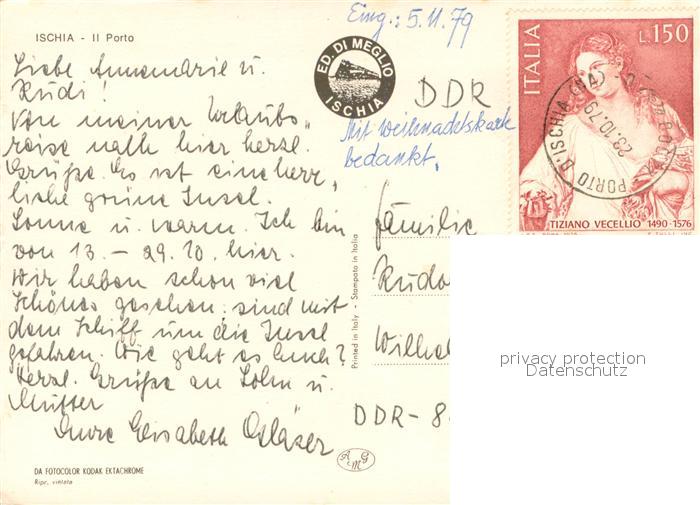 ISCHIA - Il Porto
Liebe Annemarie u.
Rudi!
Von meiner Urlaubs„
reise recht hier herzl.
Grüße. Es ist eine herr„
liche grüne Insel.
Sonne u. warm. Ich bin
von 13. – 29.10. hier.
Wir haben schon viel
Schönes gesehen. sind mit
dem Schiff um die Insel
gefahren. Wie geht es Euch?
Herzl. Grüße an Sohn u.
Mutter
Eure Elisabeth Gläser
DA FOTOCOLOR KODAK EKTACHROME
Ripr. vietata
Eing.: 5.11.79
ED. DI MEGLIO
ISCHIA
DDR
Mit Weihnachtskarte
bedankt.
Printed in Italy - Stampato in Italia
Familie
Rudo
Wilhel
DDR-8
AMG
ITALIA
L.150
PORTO D'ISCHIA (NA)
23.10.79
TIZIANO VECELLIO 1490-1576
privacy protection
Datenschutz